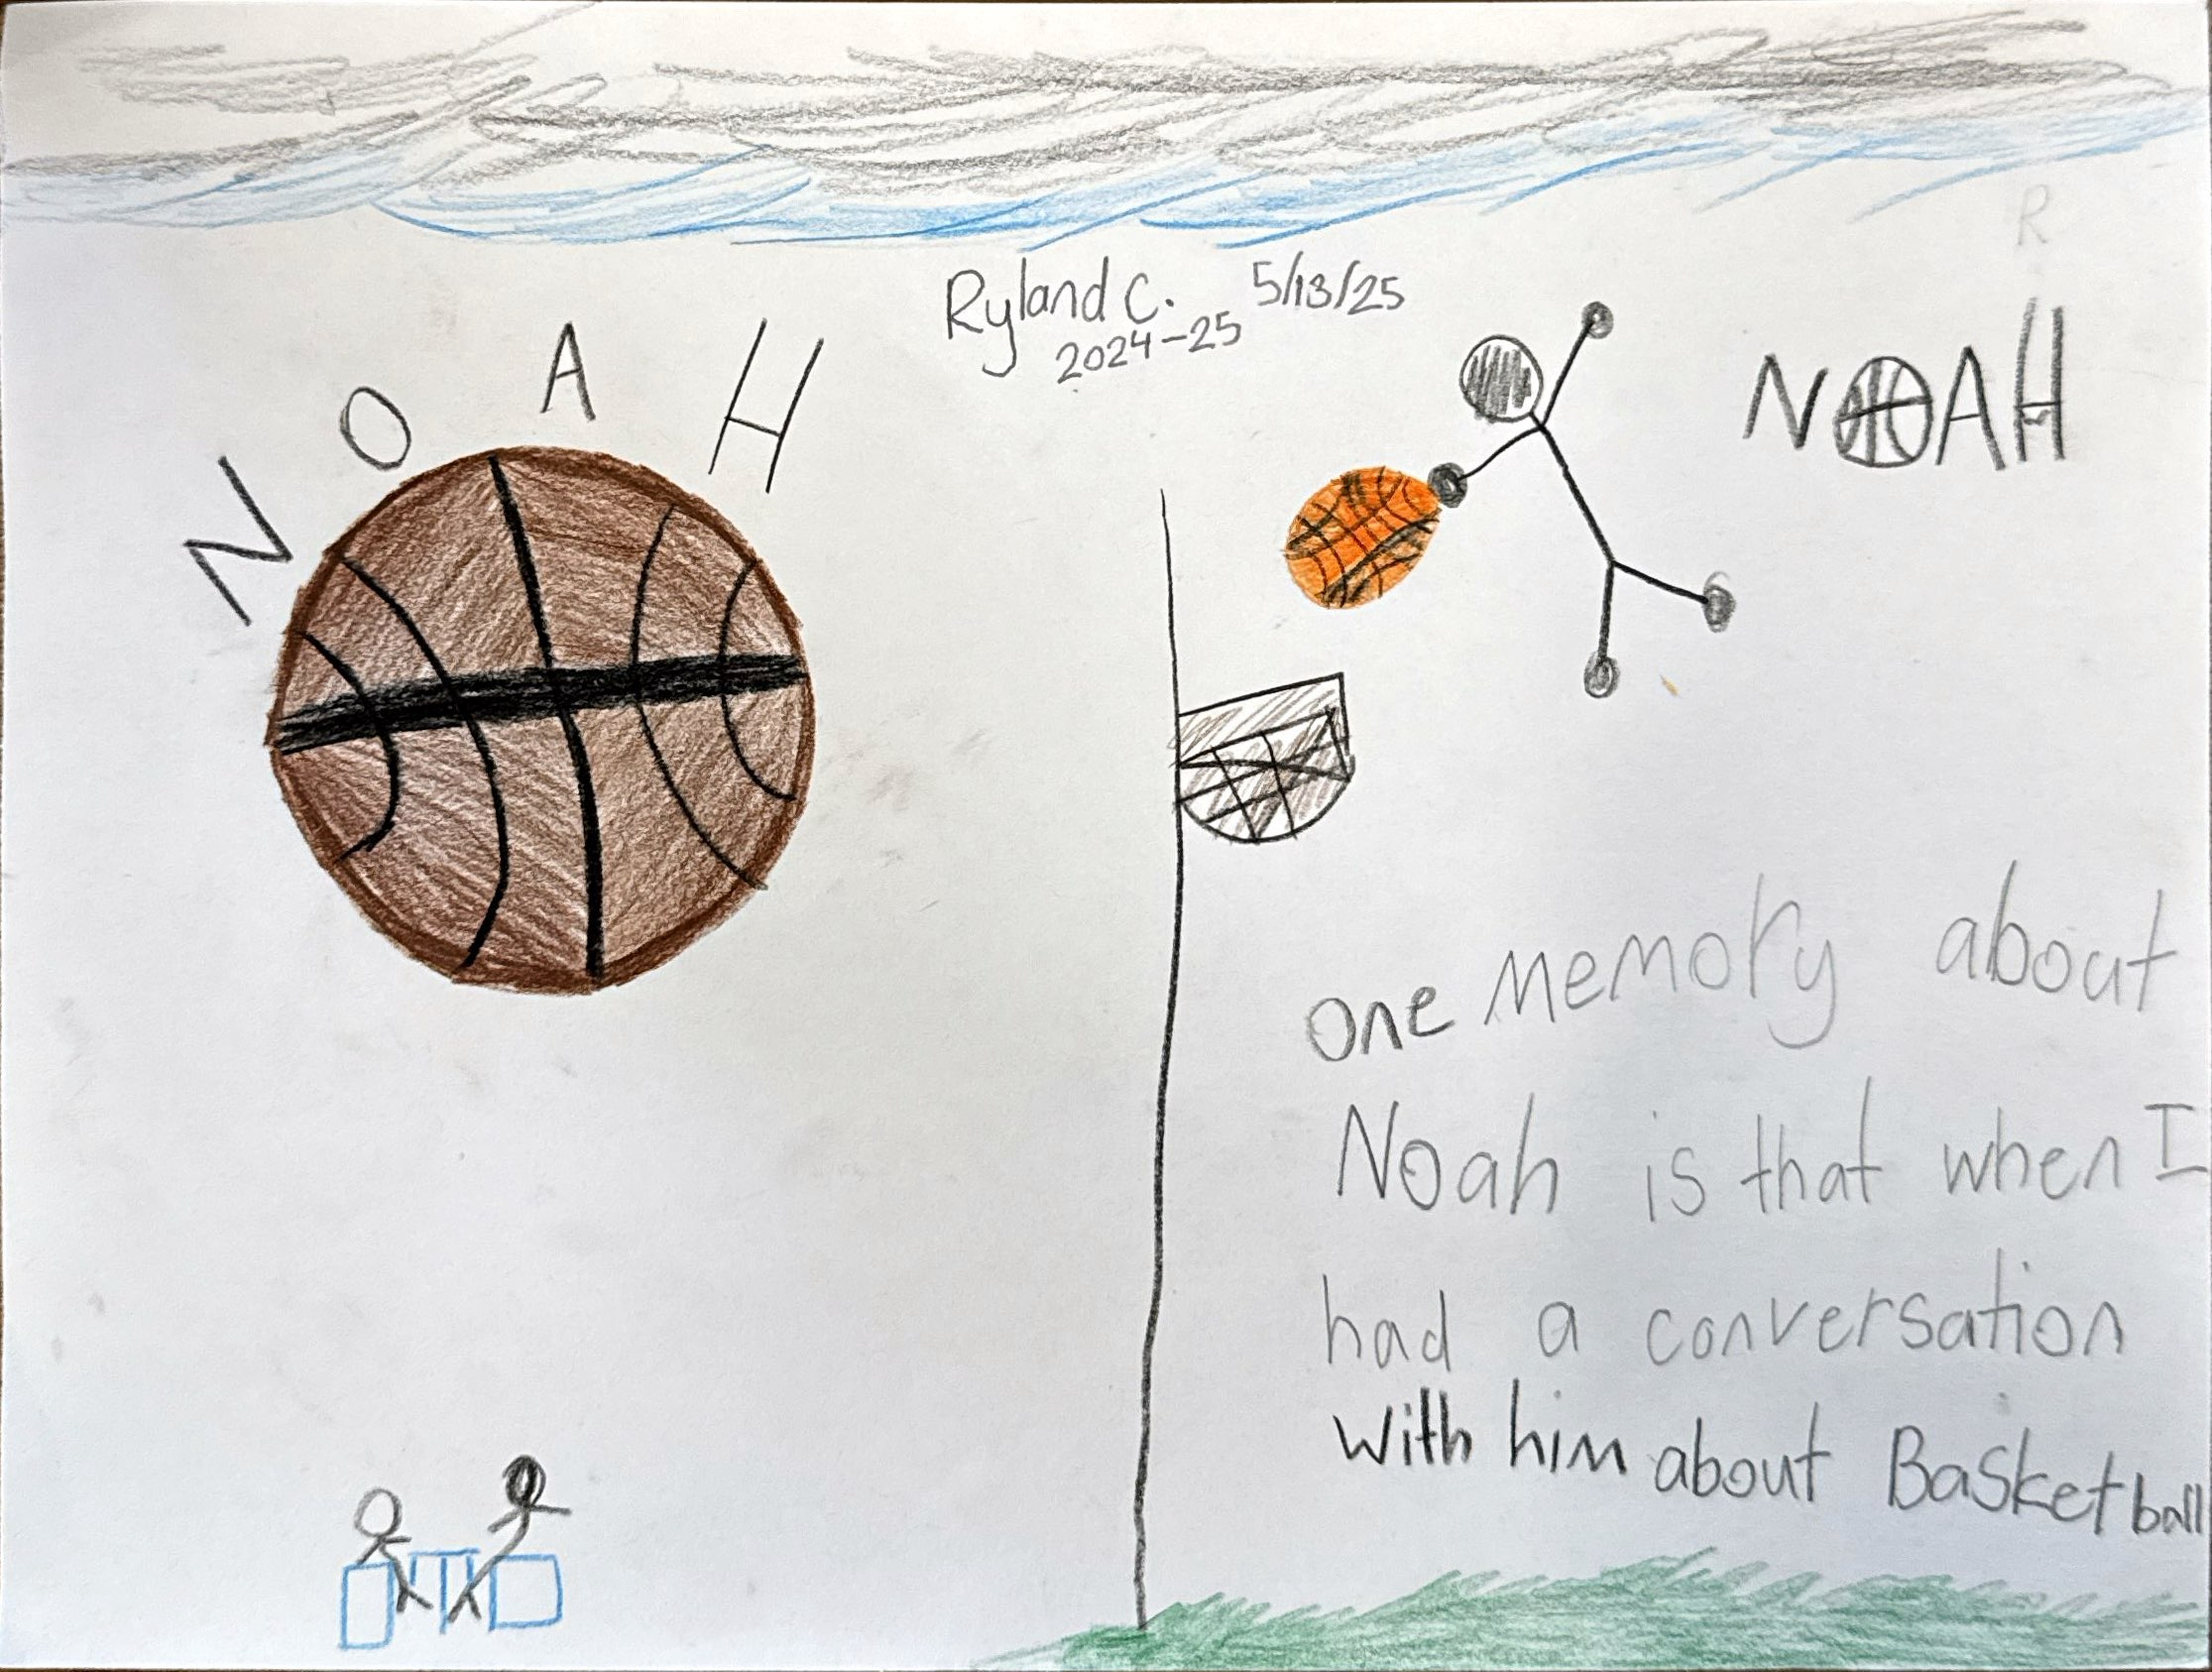 R
Ryland C. 5/13/25
2024-25
NOAH
NOAH
one memory about
Noah is that when I
had a conversation
with him about Basketball